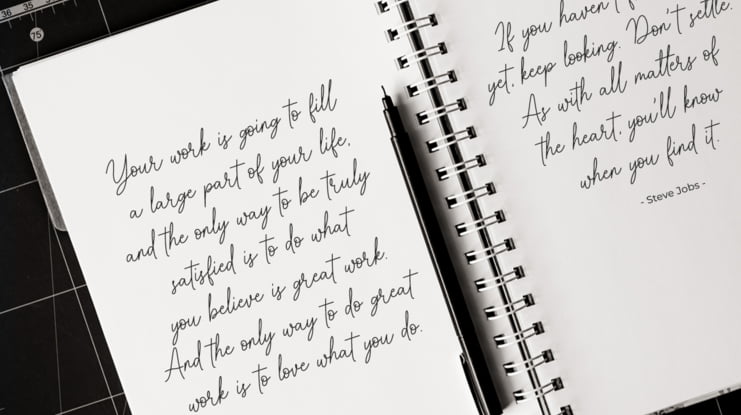 36 35
75
Your work is going to fill
a large part of your life,
and the only way to be truly
satisfied is to do what
you believe is great work.
And the only way to do great
work is to love what you do.
If you haven't
yet, keep looking. Don't settle.
As with all matters of
the heart, you'll know
when you find it.
- Steve Jobs -